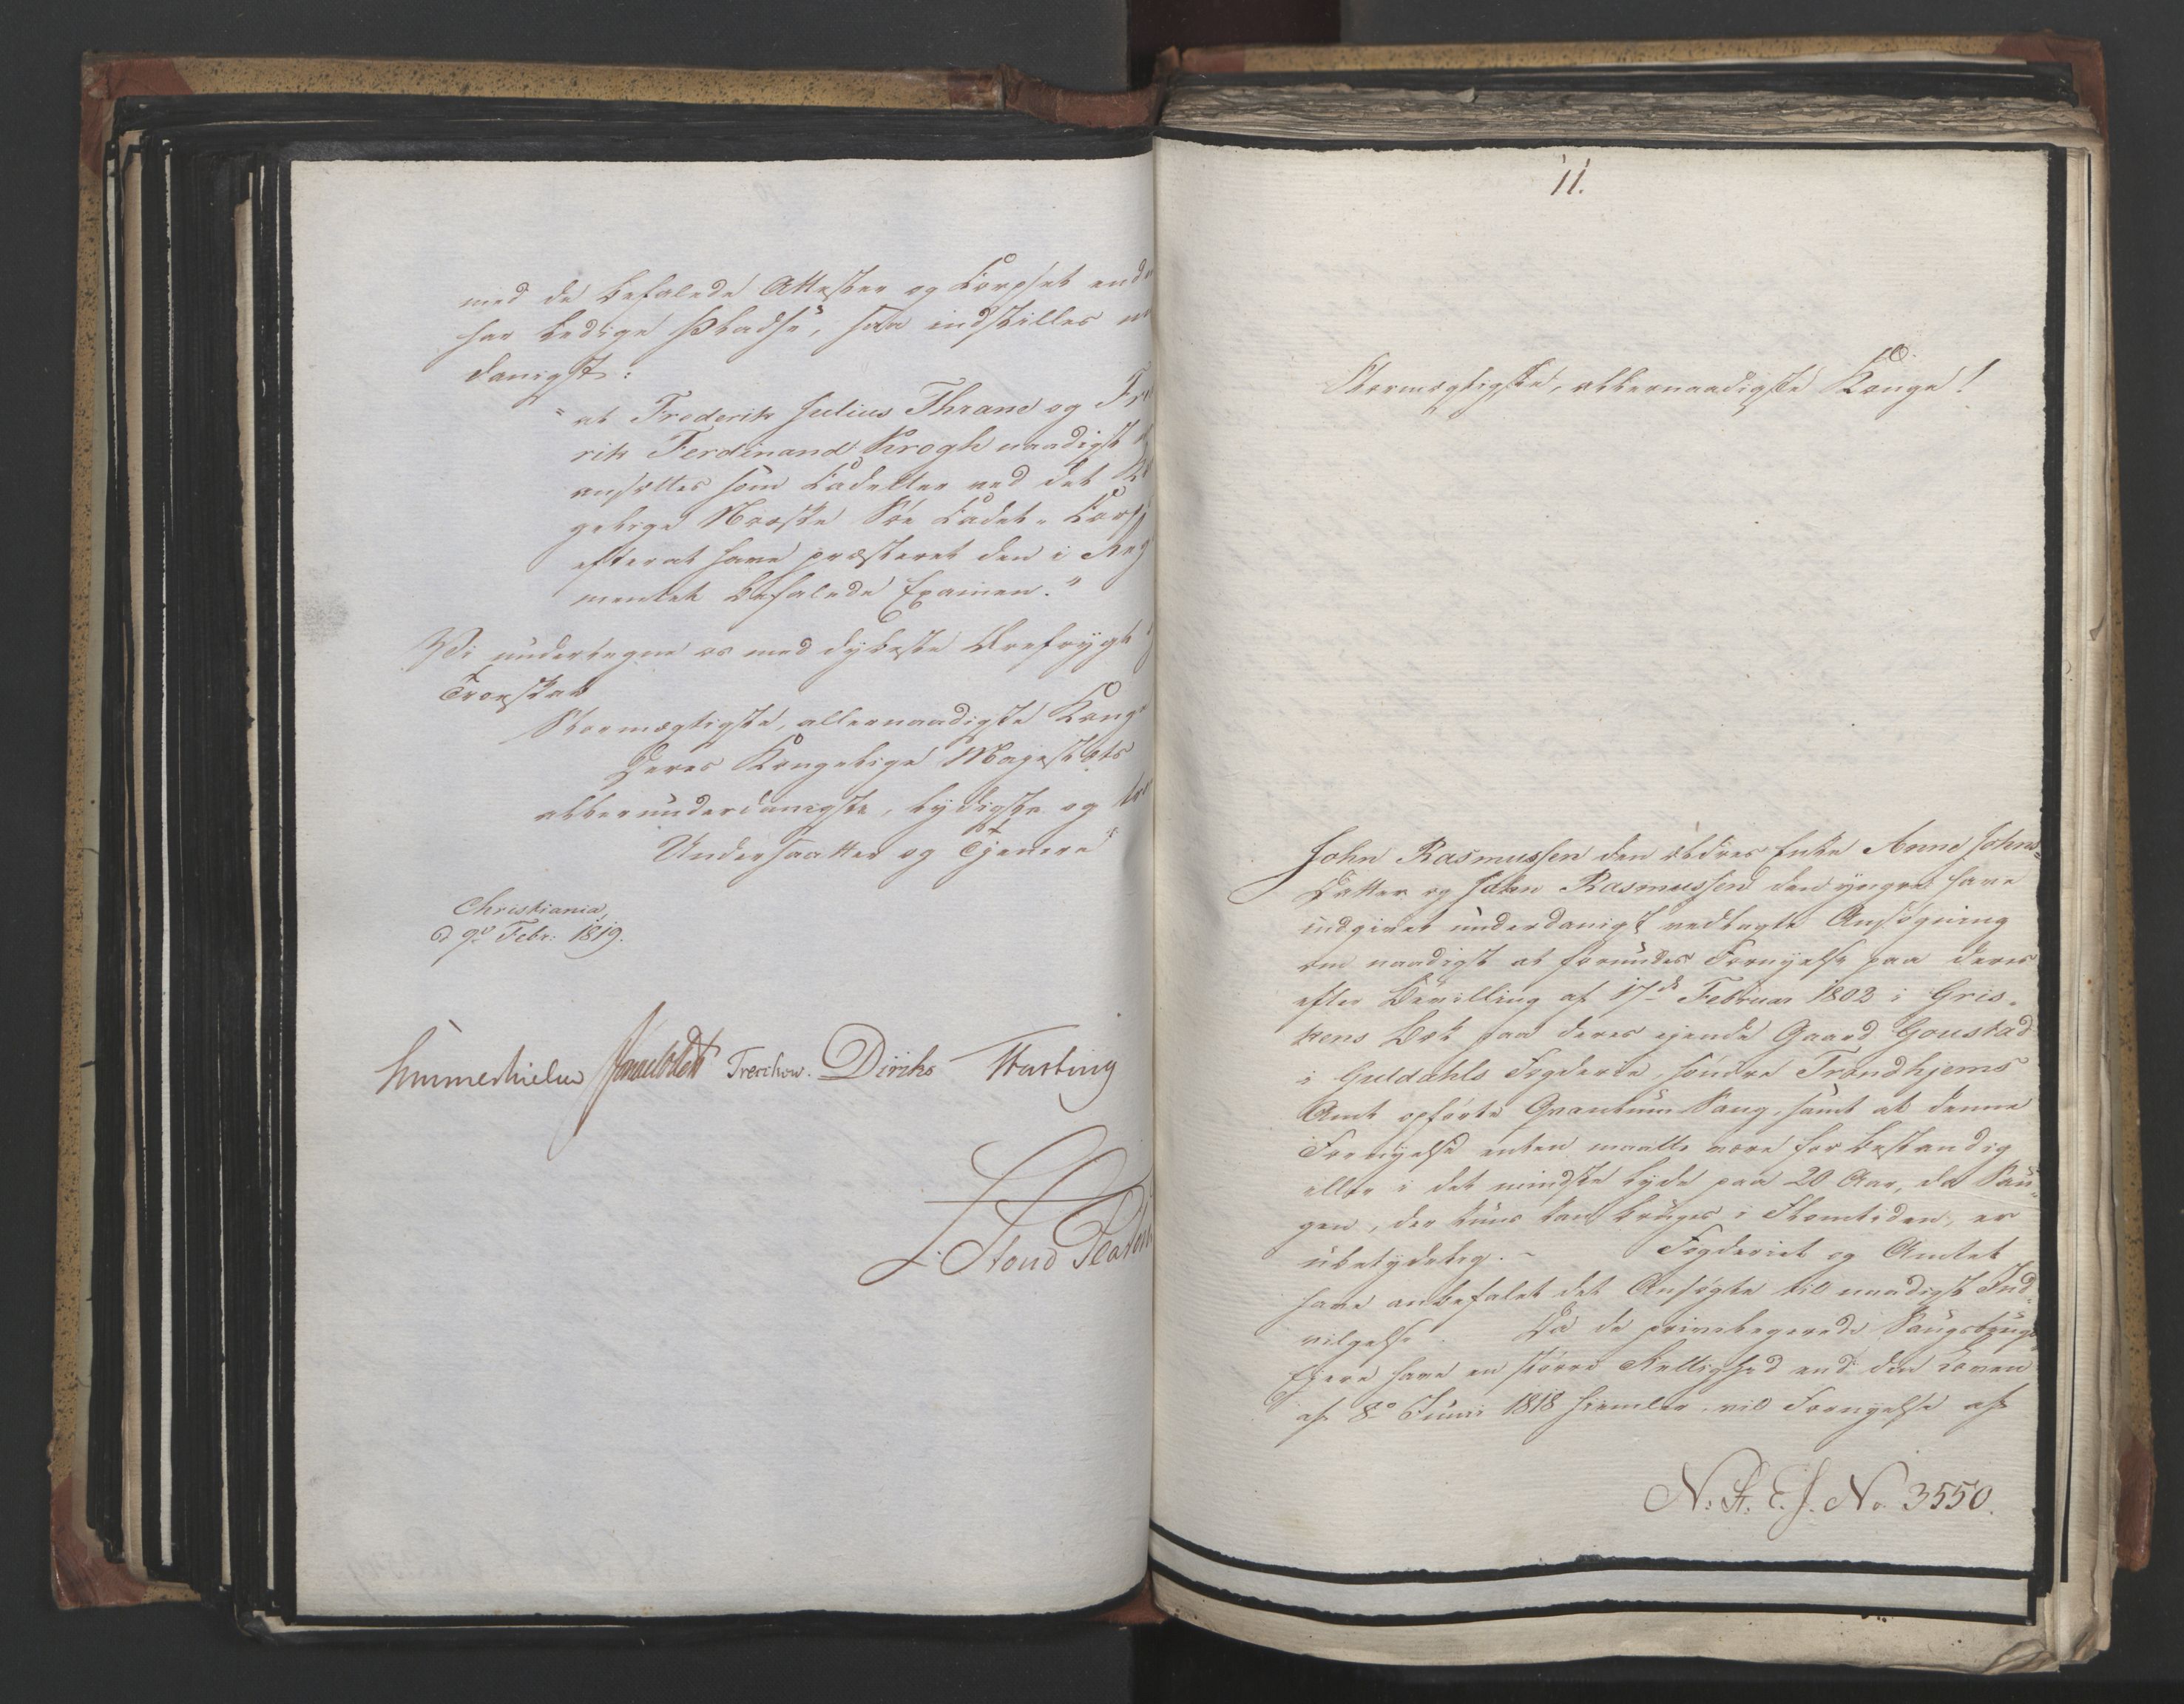 med de befalede Attester og Corpset end
har ledige Pladse, saa indstilles
danigst:
"at Frederik Julius Thrane og Fre
rik Ferdinand Krogh naadigst
ansættes som Cadetter ved det Ko
gelige Norske Søe Cadet-Corps
efterat have præsteret den i Reg
mentet befalede Examen."
Vi undertegne os med dybeste Ærefrygt
Troeskab
Stormægtigste, allernaadigste Konge
Deres Kongelige Majestæts
allerunderdanigste, lydigste og tro
Undersaatter og Tjenere
Christiania,
d 9de Febr: 1819.
Sommerhielm Treschow. Diriks Fasting
L. Stoud Platou
11.
Stormægtigste, allernaadigste Konge!
John Rasmussen den ældres Enke Anne Johns-
Datter og John Rasmussen den yngre have
indgivet underdanigst vedlagte Ansøgning
om naadigst at forundes Fornyelse paa deres
efter Bevilling af 17de Februar 1802 i Gris-
kens Bek paa deres ejende Gaard Goustad
i Guldahls Fogderie, søndre Trondhjems
Amt opførte Qvantum Saug, samt at denne
Fornyelse enten maatte være for bestandig
eller i det mindste lyde paa 20 Aar, da Sau-
gen, der kuns kan bruges i Flomtiden, er
ubetydelig. - Fogderiet og Amtet
have anbefalet det Ansøgte til naadigst Ind-
vilgelse. Da de privilegerede Saugbrugs
Ejere have en større Rettighed end den Loven
af 8de Junii 1818 hiemler, vil Fornyelse af
N. R. E. J. No. 3550.